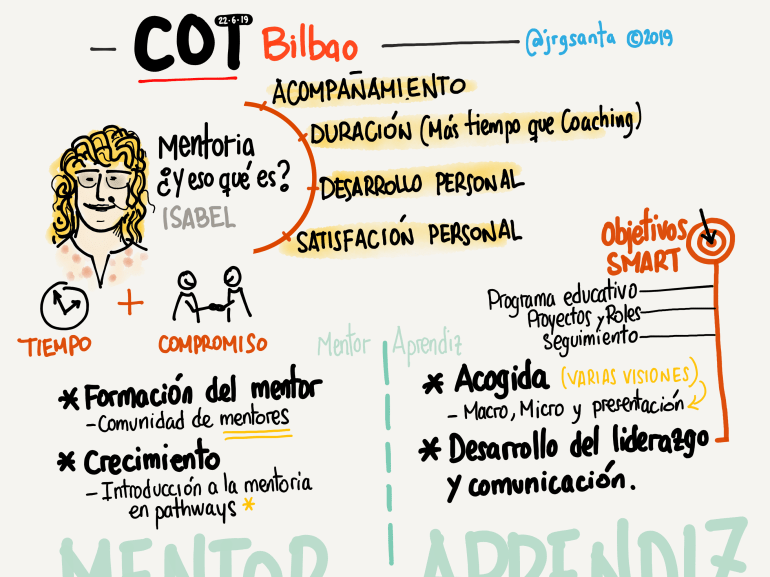 COT Bilbao
22-6-19
@jrgsanta ©2019
ACOMPAÑAMIENTO
DURACIÓN (Más tiempo que Coaching)
DESARROLLO PERSONAL
SATISFACCIÓN PERSONAL
Mentoria
¿Y eso qué es?
ISABEL
TIEMPO + COMPROMISO
Objetivos
SMART
Programa educativo
Proyectos y Roles
Seguimiento
Mentor Aprendiz
* Formación del mentor
- Comunidad de mentores
* Crecimiento
- Introducción a la mentoria
en pathways *
* Acogida (VARIAS VISIONES)
- Macro, Micro y presentación
* Desarrollo del liderazgo
y comunicación.
MENTOR APRENDIZ